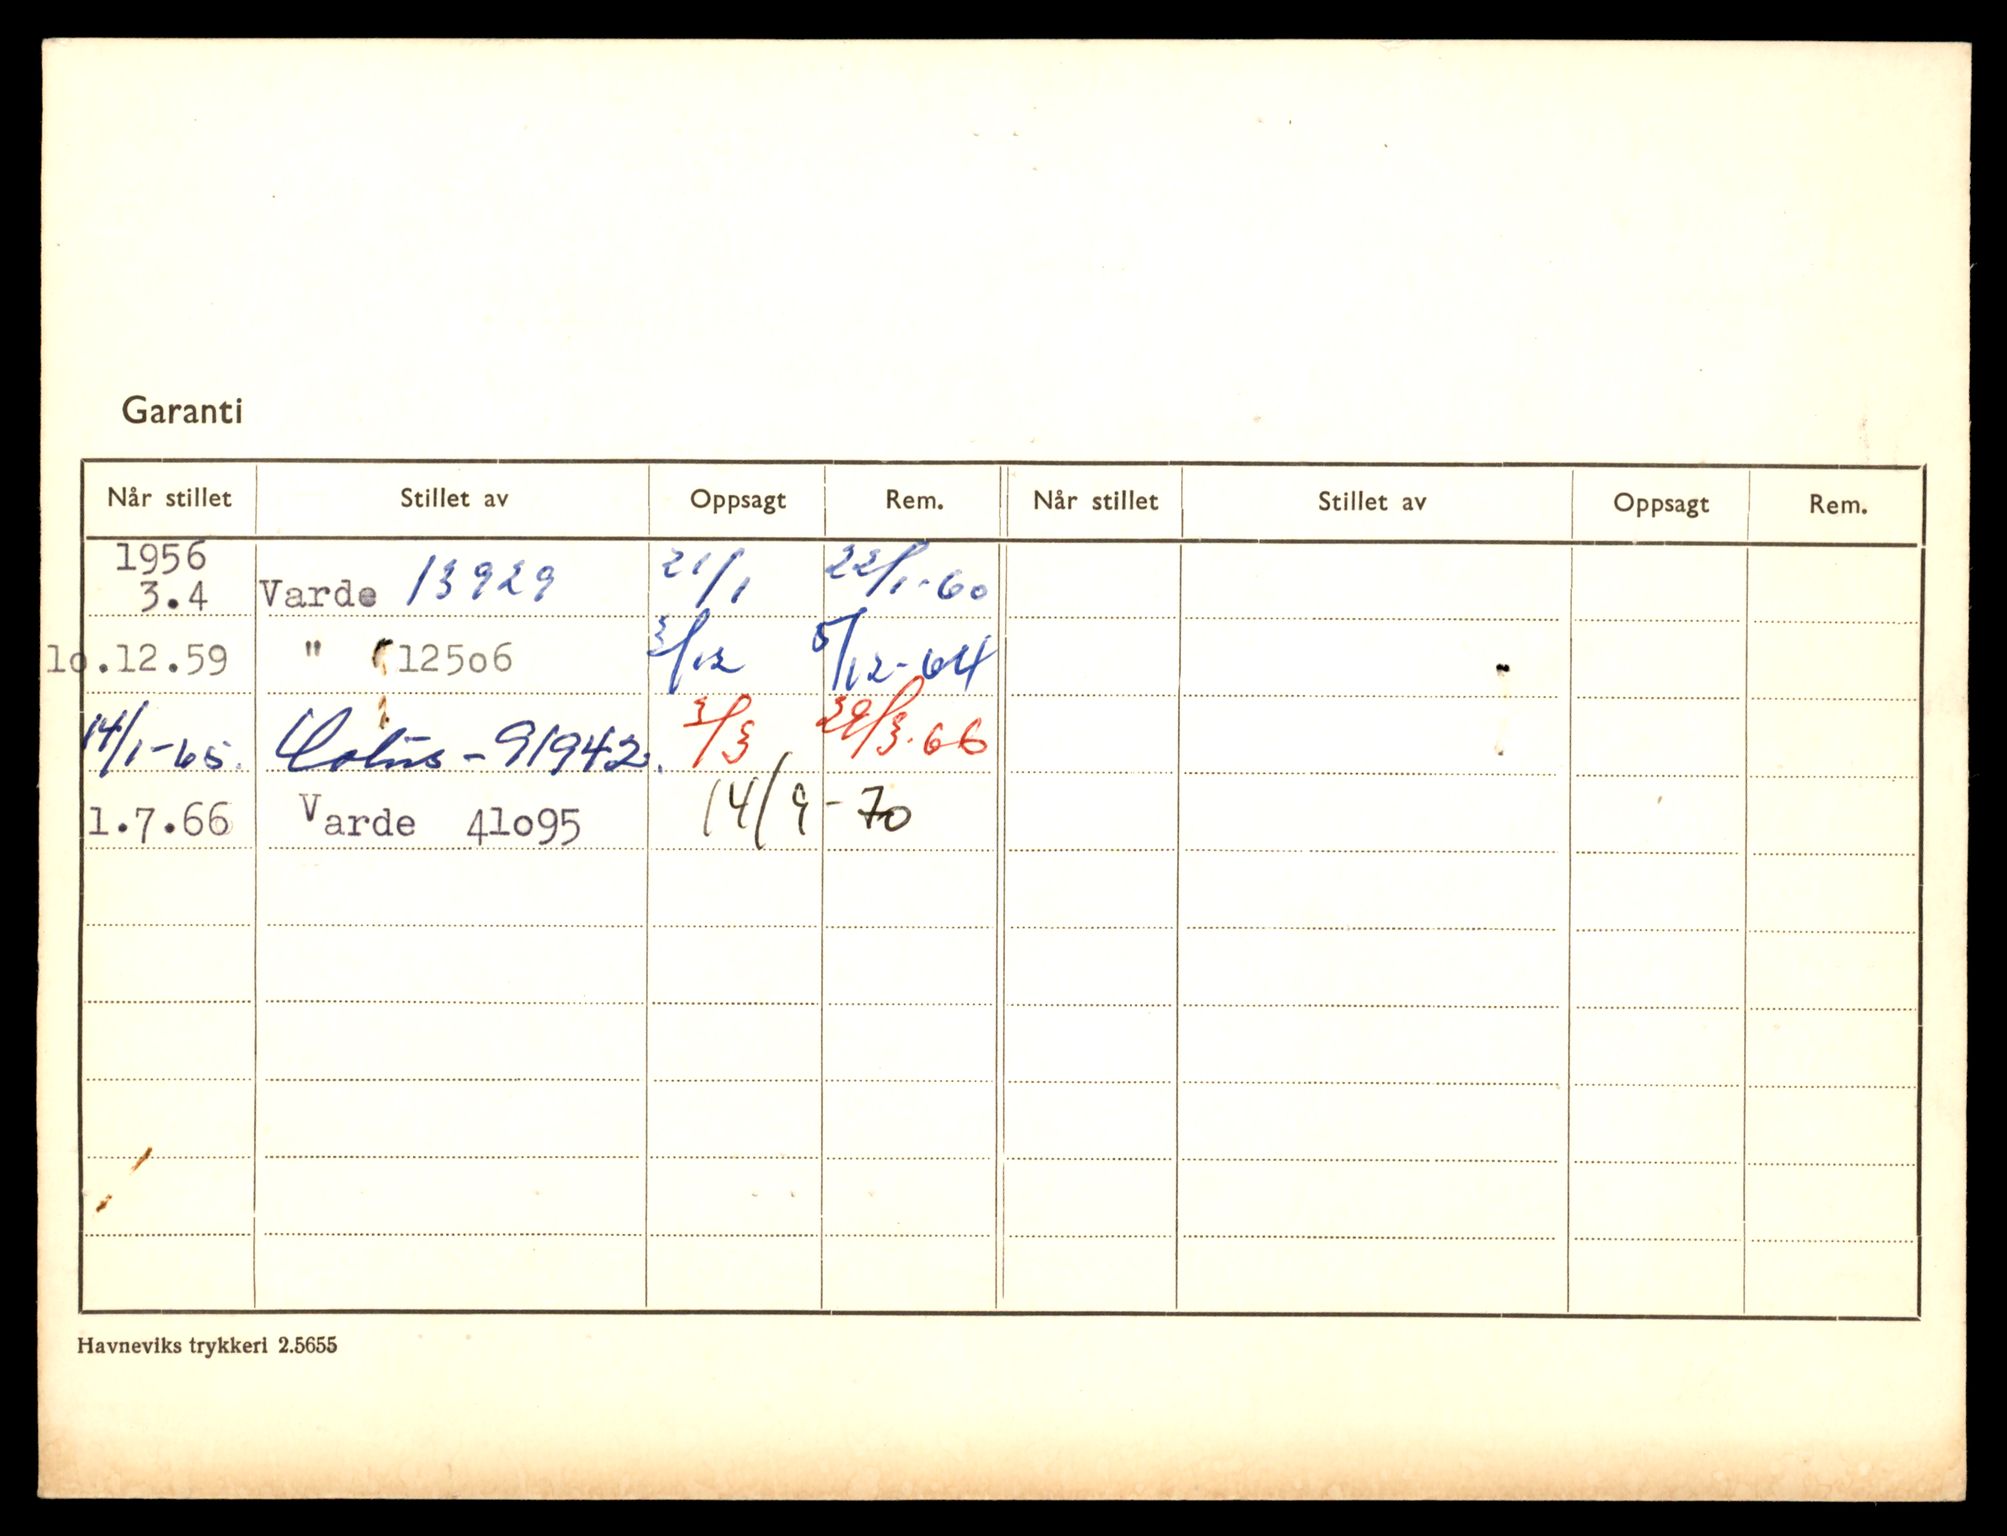 Garanti
Når stillet Stillet av Oppsagt Rem. Når stillet Stillet av Oppsagt Rem.
1956
3.4 Varde 13929 21/1 22/1-60
10.12.59 " 12506 3/12 5/12-64
14/1-65. - 91942. 3/3 29/3.66
1.7.66 Varde 41095 14/9-70
Havneviks trykkeri 2.5655